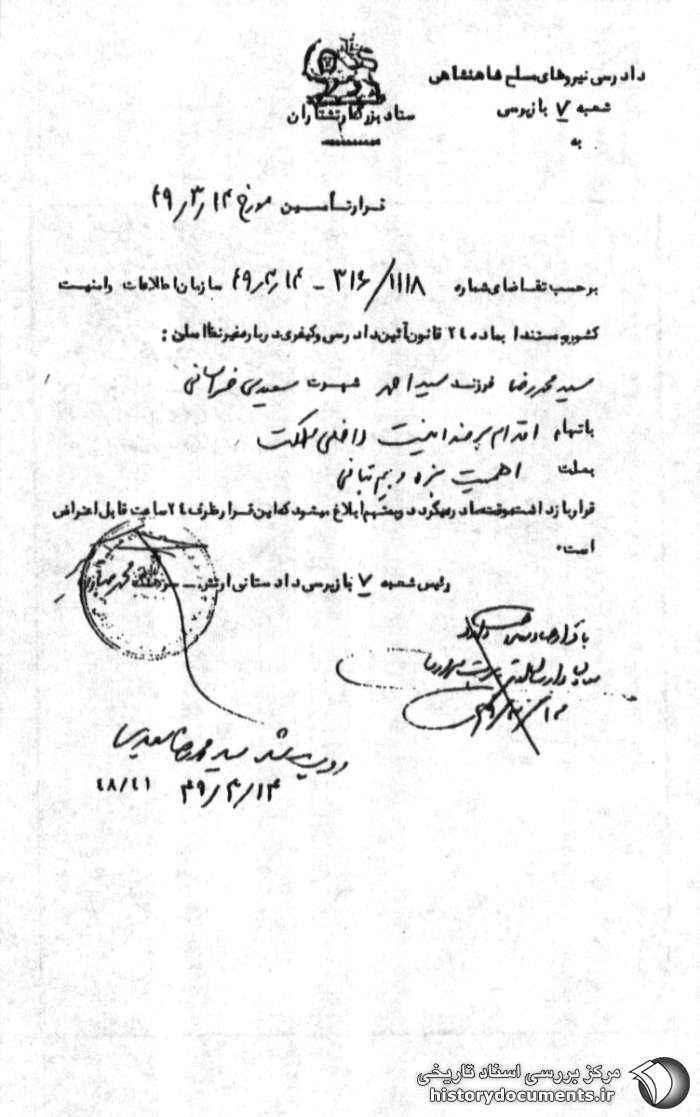 دادرسی نیروهای مسلح شاهنشاهی
شعبه ۷ بازپرسی
به
ستاد بزرگ ارتشتاران
قرار تأمین مورخ ۴۹/۳/۱۴
بر حسب تقاضای شماره ۳۱۶/۱۱۱۸ – ۴۹/۳/۱۴ سازمان اطلاعات و امنیت
کشور و مستندا بماده ۲۴ قانون آئین دادرسی و کیفری درباره غیرنظامی :
سید محمد رضا فرزند سید احمد شهرت سعیدی خراسانی
باتهام اقدام بر ضد امنیت داخلی مملکت
بعلت اهمیت بزه و بیم تبانی
قرار بازداشت موقت صادر میگردد و بمتهم ابلاغ میشود که این قرار ظرف ۲۴ ساعت قابل اعتراض
است.
رئیس شعبه ۷ بازپرسی دادستانی ارتش – سرهنگ
با قرار صادره
رویت شد سید محمد رضا سعیدی
۴۹/۳/۱۴
۴۸/۴۱
مرکز بررسی اسناد تاریخی
historydocuments.ir